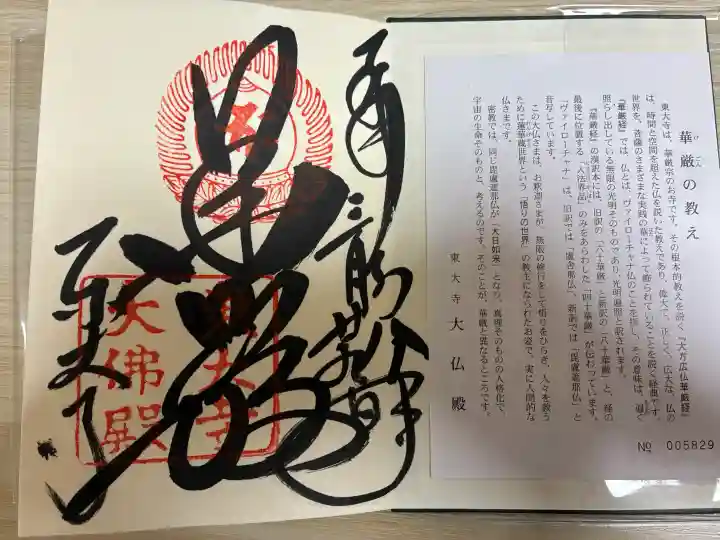 華厳の教え
東大寺は、華厳宗のお寺です。その根本的教えを説く、『大方広仏華厳経』
は、時間と空間を超えた仏を説いた教えであり、偉大で、正しく、広大な、仏の
世界を、菩薩のさまざまな実践の華によって飾られていることを説く経典です。
『華厳経』では、仏とは、ヴァイローチャナ仏のことを指し、その意味は、遍く
照らし出している無限の光明そのものであり、光明遍照と訳されます。
『華厳経』の漢訳本には、旧訳の「六十華厳」と新訳の「八十華厳」と、経の
最後に位置する「入法界品」のみをあらわした「四十華厳」が伝わっています。
「ヴァイローチャナ」は、旧訳では「盧舎那仏」、新訳では「毘盧遮那仏」と
音写しています。
この大仏さまは、お釈迦さまが、無限の修行をして悟りをひらき、人々を救う
ために蓮華蔵世界という「悟りの世界」の教主になられたお姿で、実に人間的な
仏さまです。
密教では、同じ毘盧遮那仏が「大日如来」となり、真理そのものの人格化で、
宇宙の生命そのものと、考えるのです。そのことが、華厳と異なるところです。
東大寺 大仏殿
No 005829
奉拝
華厳
東大寺
東大寺
大佛殿